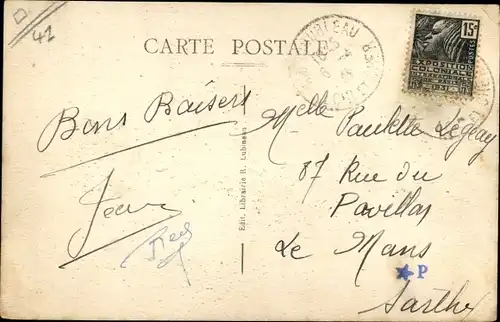 41
CARTE POSTALE
15c
POSTES
EXPOSITION
COLONIALE
INTERNATIONALE
Bons Baisers
Jean
Melle Paulette Legeay
87 Rue du
Pavillon
Le Mans
Sarthe
P
Edit. Librairie R. Lubineau